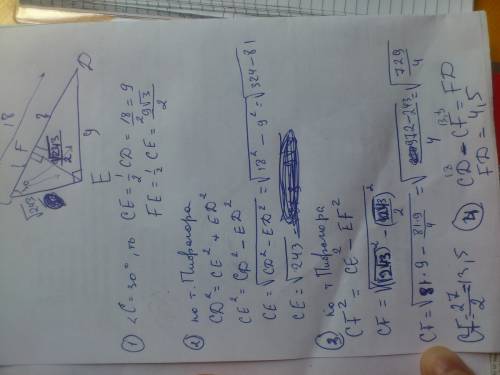 18
F
30
√243
√243
2
9
D
E
① ∠C = 30°, то CE = 1/2 CD = 18/2 = 9
FE = 1/2 CE = 9√3/2
② по т. Пифагора
CD² = CE² + ED²
CE² = CD² - ED²
CE = √CD² - ED² = √18² - 9² = √324 - 81
CE = √243
③ по т. Пифагора
CF² = CE² - EF²
CF = √(√243)² - (√243/2)²
CF = √81·9 - 81·9/4 = √972-243/4 = √729/4
CF = 27/2 = 13,5
④ CD - CF = FD
18 13,5
FD = 4,5